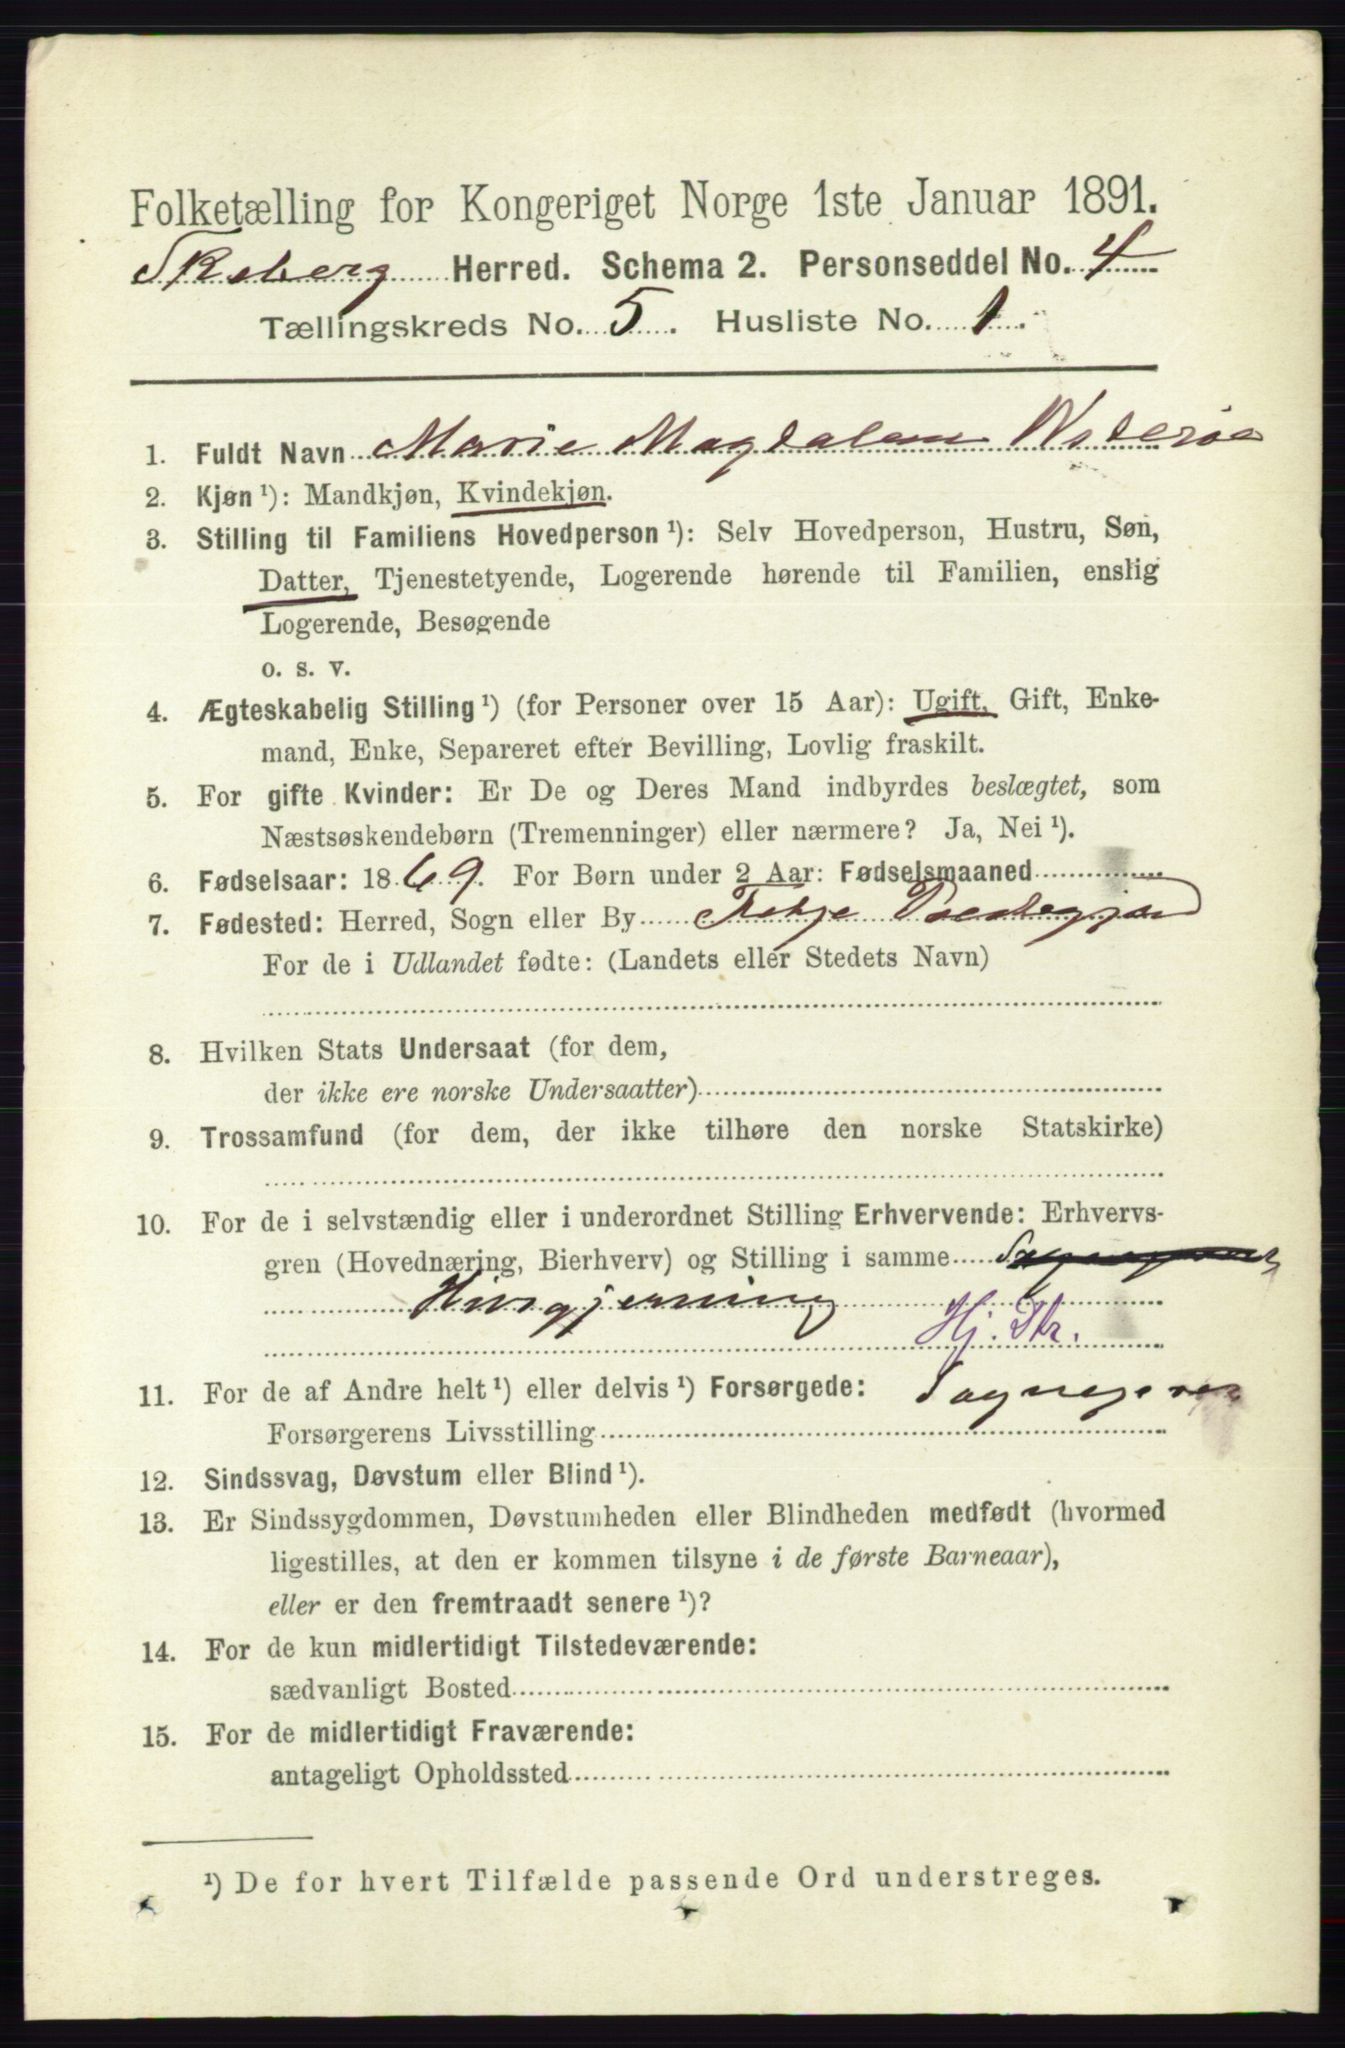 Folketælling for Kongeriget Norge 1ste Januar 1891.
Skeberg Herred. Schema 2. Personseddel No. 4
Tællingskreds No. 5. Husliste No. 1.
1. Fuldt Navn Marie Magdalene Widerøe
2. Kjøn ¹): Mandkjøn, Kvindekjøn.
3. Stilling til Familiens Hovedperson ¹): Selv Hovedperson, Hustru, Søn,
Datter, Tjenestetyende, Logerende hørende til Familien, enslig
Logerende, Besøgende
o. s. v.
4. Ægteskabelig Stilling ¹) (for Personer over 15 Aar): Ugift, Gift, Enke-
mand, Enke, Separeret efter Bevilling, Lovlig fraskilt.
5. For gifte Kvinder: Er De og Deres Mand indbyrdes beslægtet, som
Næstsøskendebørn (Tremenninger) eller nærmere? Ja, Nei ¹).
6. Fødselsaar: 1869. For Børn under 2 Aar: Fødselsmaaned
7. Fødested: Herred, Sogn eller By
For de i Udlandet fødte: (Landets eller Stedets Navn)
8. Hvilken Stats Undersaat (for dem,
der ikke ere norske Undersaatter)
9. Trossamfund (for dem, der ikke tilhøre den norske Statskirke)
10. For de i selvstændig eller i underordnet Stilling Erhvervende: Erhvervs-
gren (Hovednæring, Bierhverv) og Stilling i samme
Husgjerning
Hj. Str.
11. For de af Andre helt ¹) eller delvis ¹) Forsørgede:
Forsørgerens Livsstilling
12. Sindssvag, Døvstum eller Blind ¹).
13. Er Sindssygdommen, Døvstumheden eller Blindheden medfødt (hvormed
ligestilles, at den er kommen tilsyne i de første Barneaar),
eller er den fremtraadt senere ¹)?
14. For de kun midlertidigt Tilstedeværende:
sædvanligt Bosted
15. For de midlertidigt Fraværende:
antageligt Opholdssted
¹) De for hvert Tilfælde passende Ord understreges.